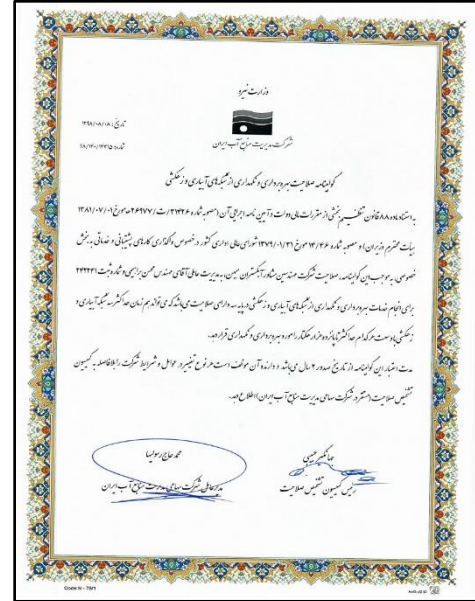 وزارت نیرو
شرکت مدیریت منابع آب ایران
تاریخ: ۱۳۹۸/۰۸/۰۸
شماره: ۹۸/۱۳۰/۱۴۳۱۵
گواهینامه صلاحیت بهره‌برداری و نگهداری از شبکه‌های آبیاری و زهکشی
به استناد ماده ۸۸ قانون تنظیم بخشی از مقررات مالی دولت و آیین نامه اجرایی آن (مصوبه شماره ۳۱۴۲۶/ت/۲۶۹۷۷ه مورخ ۱۳۸۱/۰۷/۰۱
هیأت محترم وزیران) و مصوبه شماره ۱۳/۳۶ مورخ ۱۳۷۹/۰۱/۳۱ شورای عالی اداری کشور در خصوص واگذاری کارهای پشتیبانی و خدماتی به بخش
خصوصی، به موجب این گواهینامه، صلاحیت شرکت مهندسین مشاور آبگستران میهن، به مدیریت عاملی آقای مهندس محسن براهیمی و شماره ثبت ۲۴۲۲۴۱
برای انجام خدمات بهره‌برداری و نگهداری از شبکه‌های آبیاری و زهکشی در پایه سه دارای صلاحیت می‌باشد که می‌تواند هم زمان حداکثر سه شبکه آبیاری و
زهکشی با وسعت هر کدام حداکثر تا پانزده هزار هکتار را مورد بهره‌برداری و نگهداری قرار دهد.
مدت اعتبار این گواهینامه از تاریخ صدور ۲ سال می‌باشد و دارنده آن موظف است هر نوع تغییر در عوامل و شرایط شرکت را بلافاصله به کمیسیون
تشخیص صلاحیت (مستقر در شرکت سهامی مدیریت منابع آب ایران) اطلاع دهد.
جهانگیر حبیبی
رئیس کمیسیون تشخیص صلاحیت
محمد حاج رسولیها
مدیرعامل شرکت سهامی مدیریت منابع آب ایران
Code N - 79/1